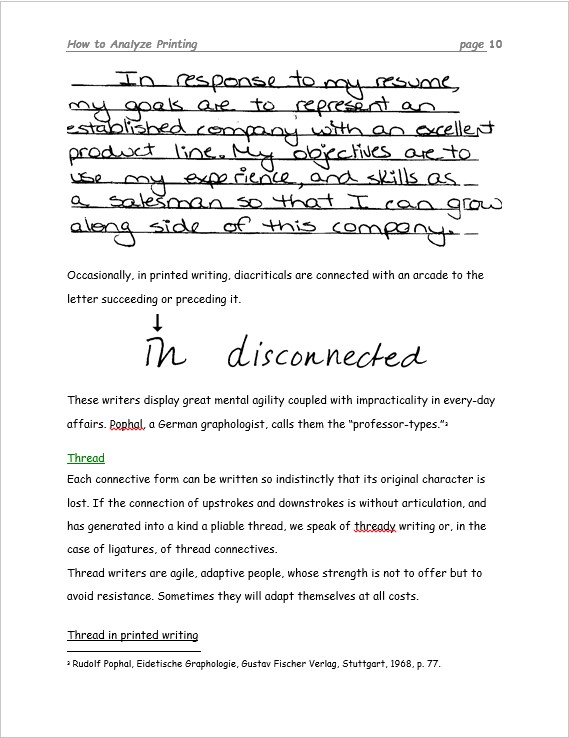 How to Analyze Printing page 10
In response to my resume,
my goals are to represent an
established company with an excellent
product line. My objectives are to
use my experience, and skills as
a salesman so that I can grow
along side of this company.
Occasionally, in printed writing, diacriticals are connected with an arcade to the
letter succeeding or preceding it.
in disconnected
These writers display great mental agility coupled with impracticality in every-day
affairs. Pophal, a German graphologist, calls them the “professor-types.”²
Thread
Each connective form can be written so indistinctly that its original character is
lost. If the connection of upstrokes and downstrokes is without articulation, and
has generated into a kind a pliable thread, we speak of thready writing or, in the
case of ligatures, of thread connectives.
Thread writers are agile, adaptive people, whose strength is not to offer but to
avoid resistance. Sometimes they will adapt themselves at all costs.
Thread in printed writing
² Rudolf Pophal, Eidetische Graphologie, Gustav Fischer Verlag, Stuttgart, 1968, p. 77.